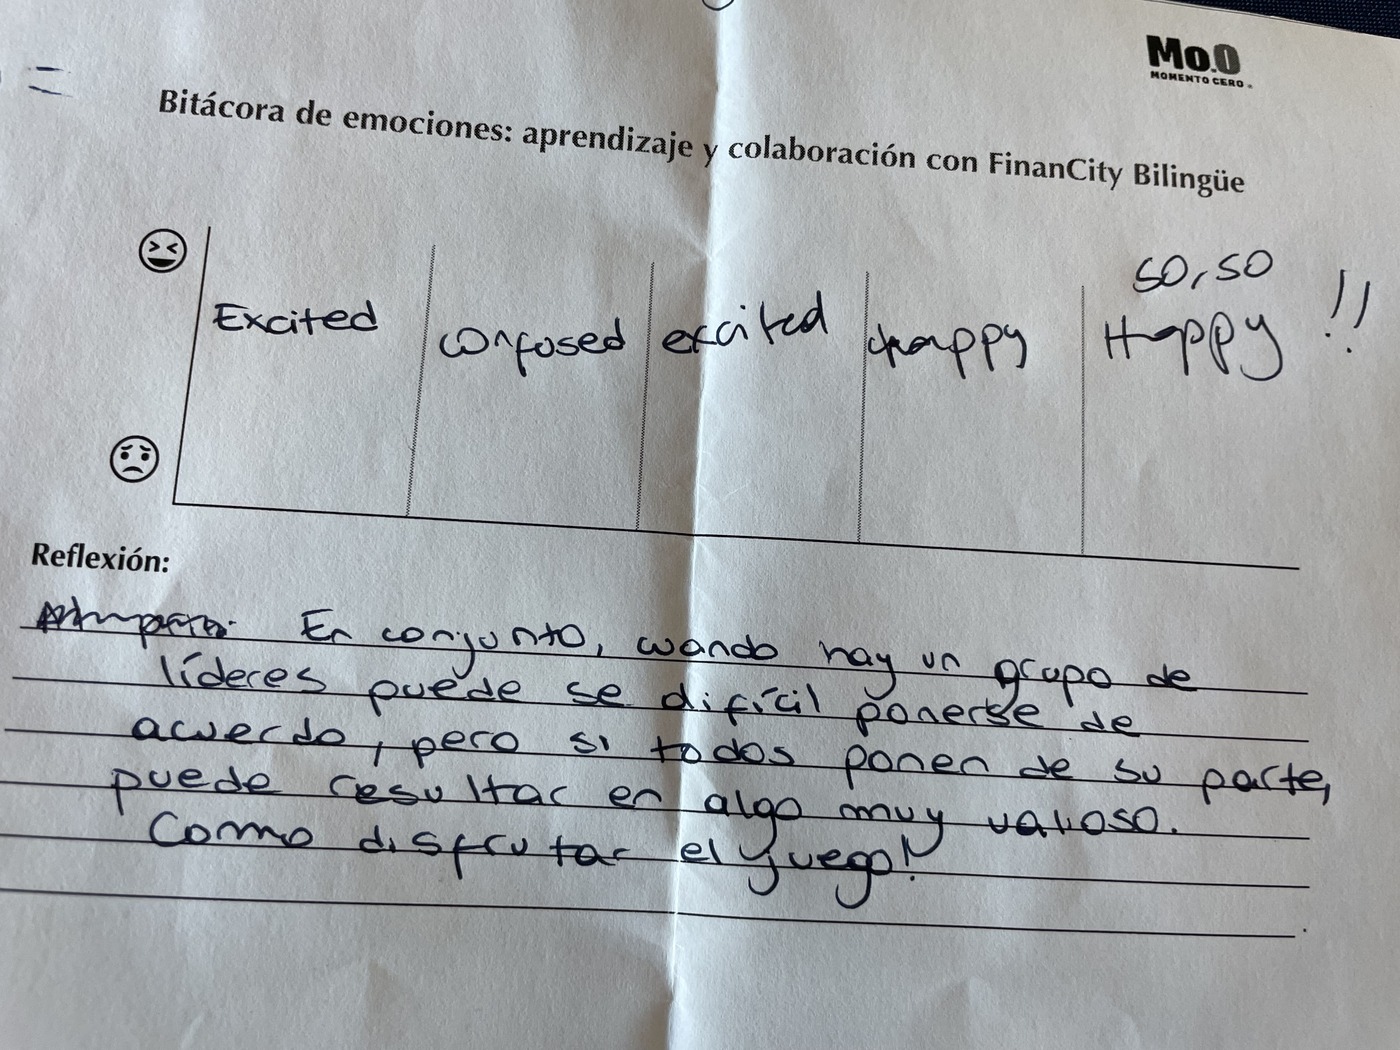 Mo.0
MOMENTO CERO
Bitácora de emociones: aprendizaje y colaboración con FinanCity Bilingüe
so, so
Excited confused excited happy Happy !!
Reflexión:
En conjunto, cuando hay un grupo de
líderes puede se difícil ponerse de
acuerdo, pero si todos ponen de su parte,
puede resultar en algo muy valioso.
Como disfrutar el juego!